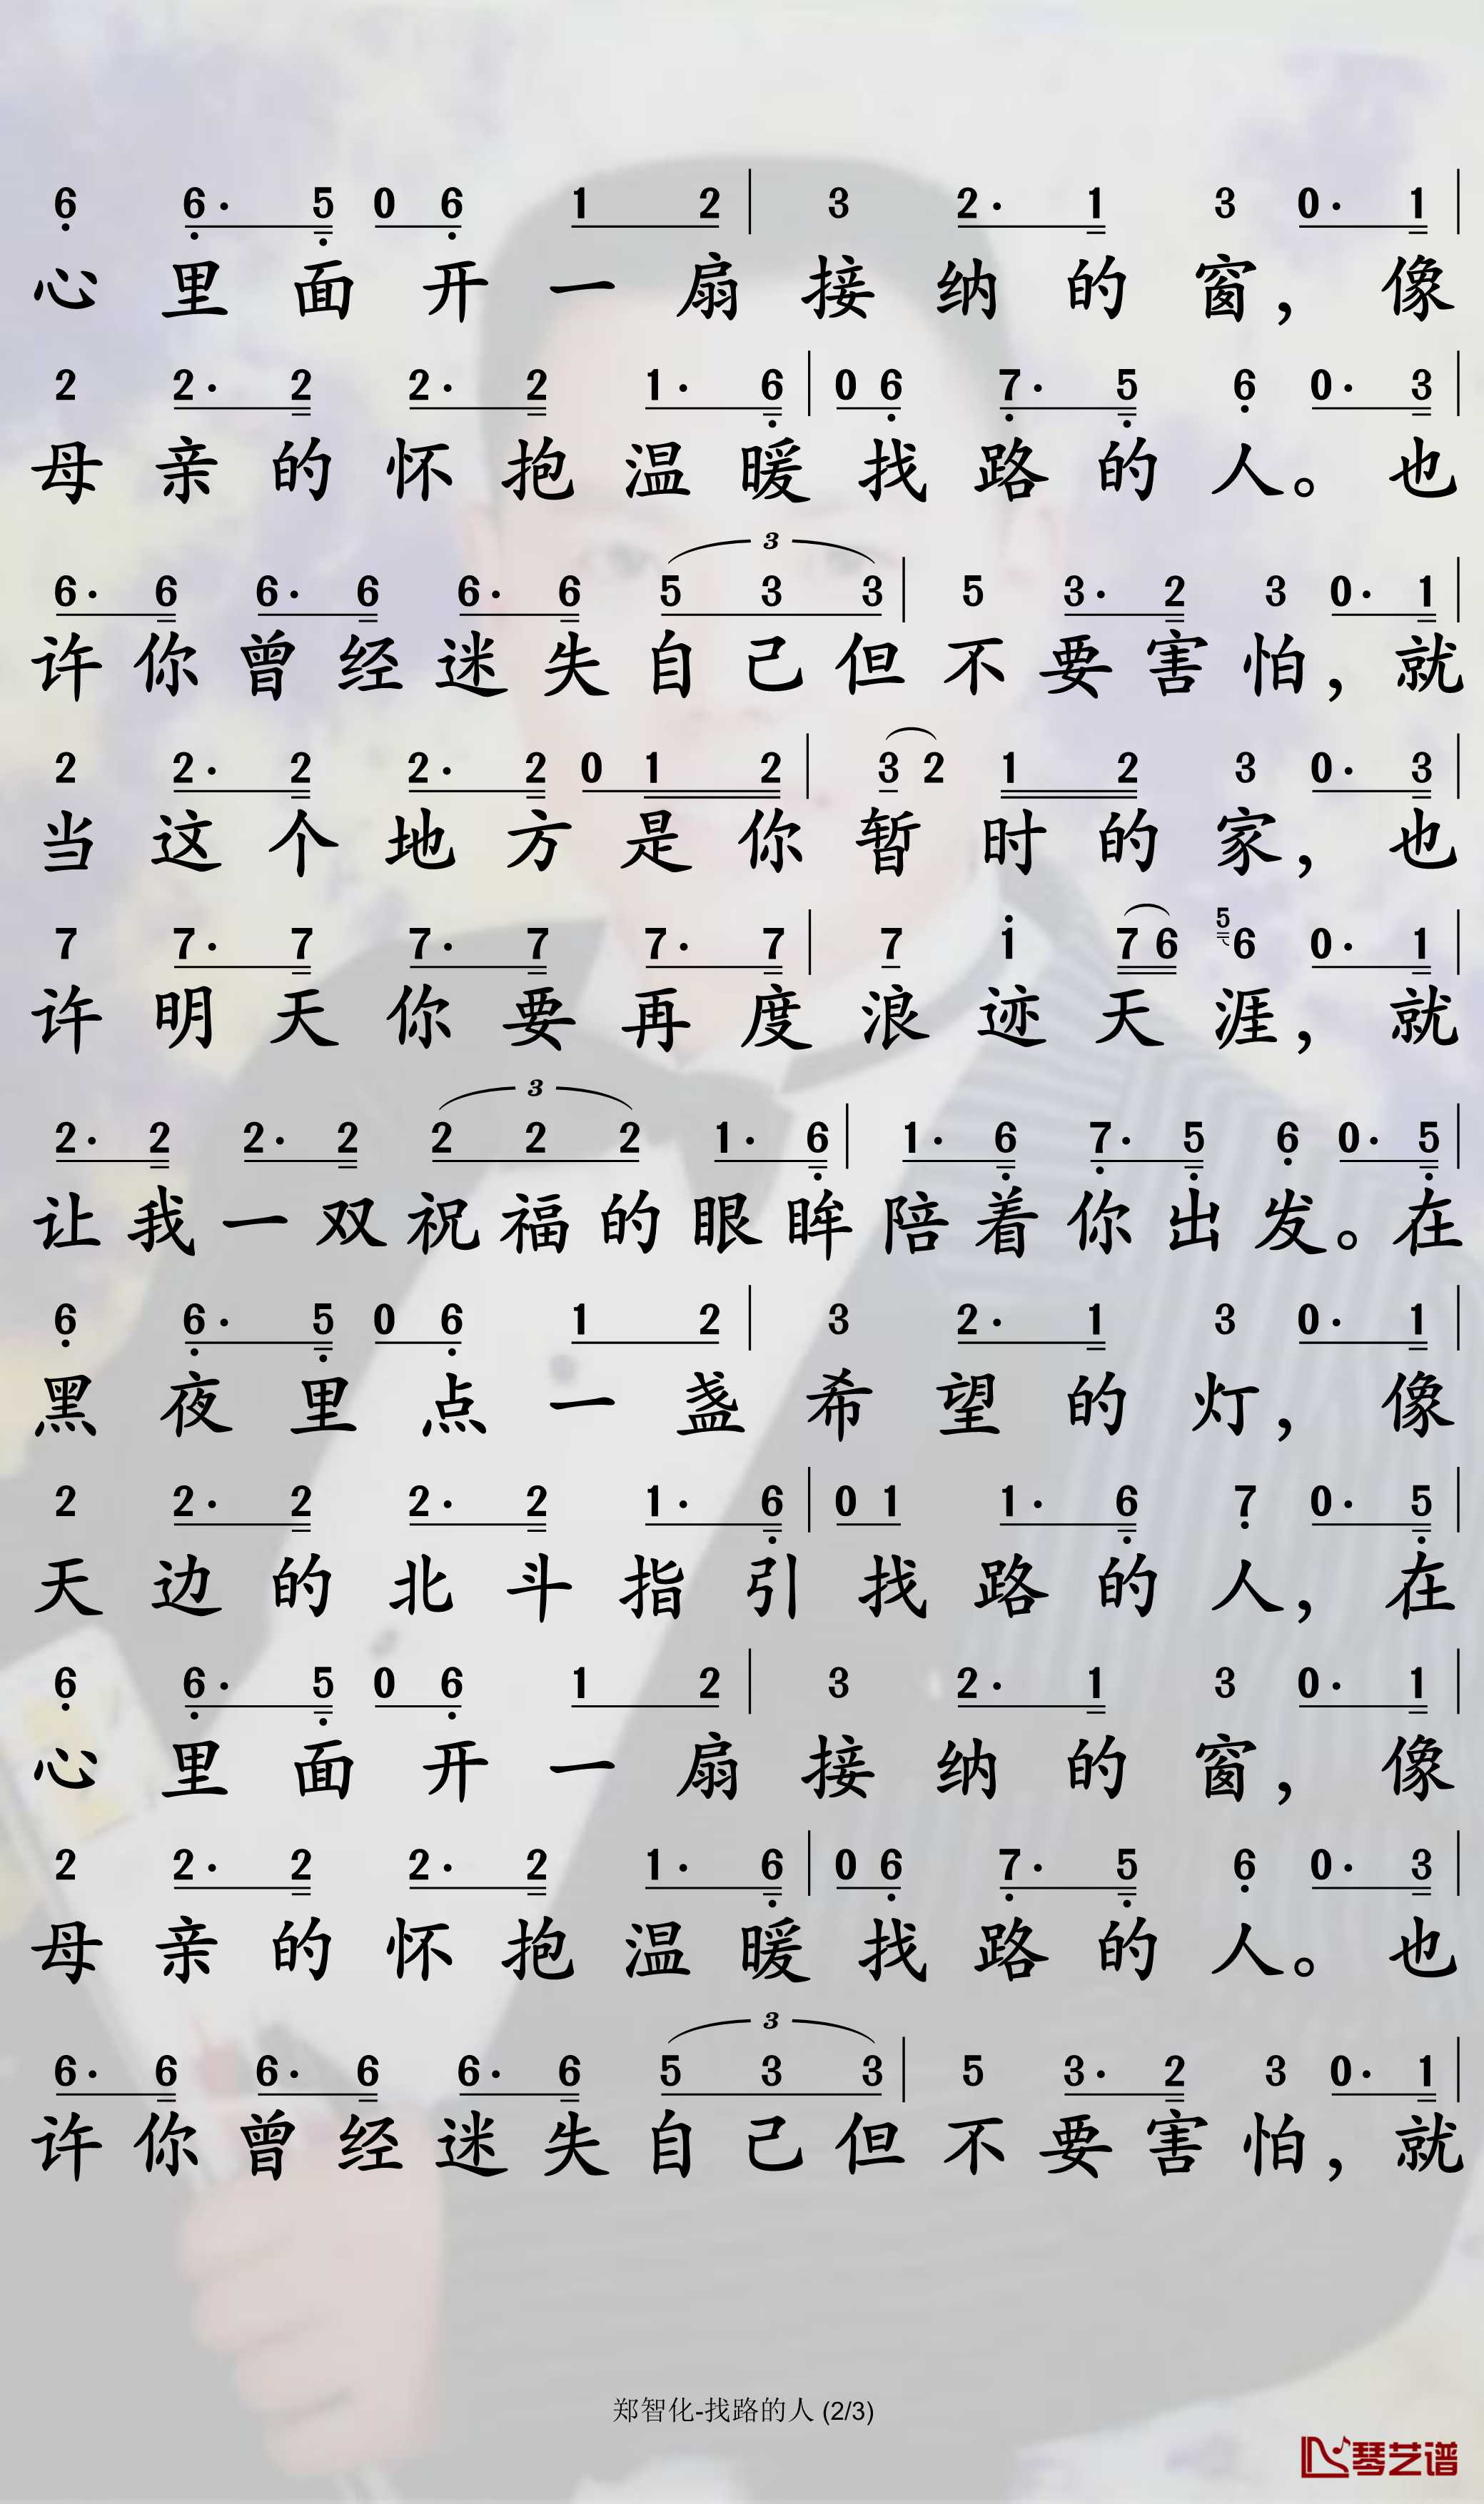 6 6· 5 0 6 1 2 | 3 2· 1 3 0· 1 |
心里面开一扇接纳的窗，像
2 2· 2 2· 2 1· 6 | 0 6 7· 5 6 0· 3 |
母亲的怀抱温暖找路的人。也
3
6· 6 6· 6 6· 6 5 3 3 | 5 3· 2 3 0· 1 |
许你曾经迷失自己但不要害怕，就
2 2· 2 2· 2 0 1 2 | 3 2 1 2 3 0· 3 |
当这个地方是你暂时的家，也
7 7· 7 7· 7 7· 7 | 7 i 7 6 5 6 0· 1 |
许明天你要再度浪迹天涯，就
3
2· 2 2· 2 2 2 2 1· 6 | 1· 6 7· 5 6 0· 5 |
让我一双祝福的眼眸陪着你出发。在
6 6· 5 0 6 1 2 | 3 2· 1 3 0· 1 |
黑夜里点一盏希望的灯，像
2 2· 2 2· 2 1· 6 | 0 1 1· 6 7 0· 5 |
天边的北斗指引找路的人，在
6 6· 5 0 6 1 2 | 3 2· 1 3 0· 1 |
心里面开一扇接纳的窗，像
2 2· 2 2· 2 1· 6 | 0 6 7· 5 6 0· 3 |
母亲的怀抱温暖找路的人。也
3
6· 6 6· 6 6· 6 5 3 3 | 5 3· 2 3 0· 1 |
许你曾经迷失自己但不要害怕，就
郑智化-找路的人 (2/3)
琴艺谱